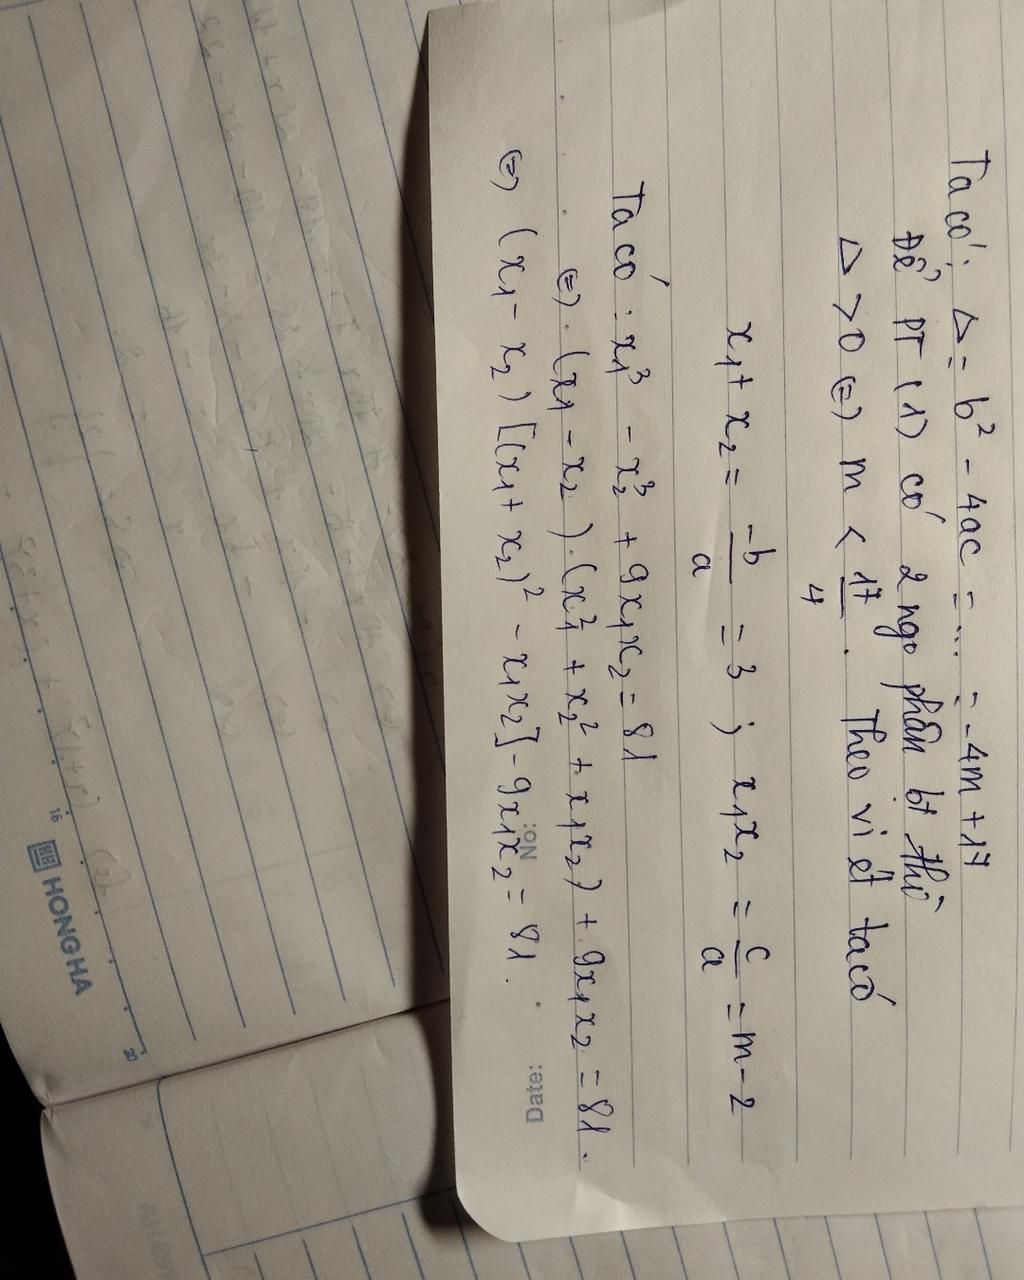 Ta có: Δ = b² - 4ac = ... = -4m + 17
Để PT (1) có 2 ngo phân bt thì
Δ > 0 (=) m < 17/4 . Theo vi ét ta có
x₁ + x₂ = -b/a = 3 ; x₁x₂ = c/a = m - 2
Ta có : x₁³ - x₂³ + 9x₁x₂ = 81
(=) . (x₁ - x₂) . (x₁² + x₂² + x₁x₂) + 9x₁x₂ = 81 .
(=) (x₁ - x₂) [(x₁ + x₂)² - x₁x₂] - 9x₁x₂ = 81 .
No:
Date:
16
HONG HA
20